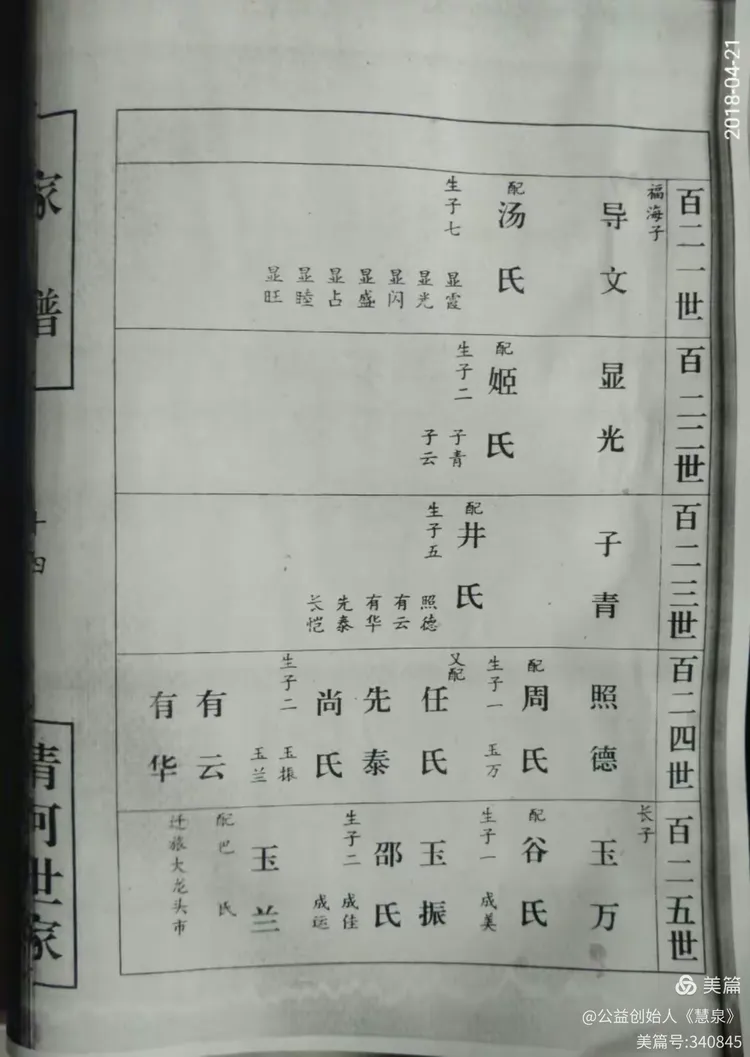 2018-04-21
百二一世
福海子
导文
配
汤氏
生子七
显霞
显光
显闪
显盛
显占
显睦
显旺
百二二世
显光
配
姬氏
生子二
子青
子云
百二三世
子青
配
井氏
生子五
照德
有云
有华
先泰
长恺
百二四世
照德
配
周氏
生子一
玉万
又配
任氏
先泰
尚氏
生子二
玉振
玉兰
有云
有华
百二五世
长子
玉万
配
谷氏
生子一
成美
玉振
邵氏
生子二
成佳
成运
玉兰
配巴氏
迁旅大龙头市
家谱
十四
清河世家
美篇
@公益创始人《慧泉》
美篇号:340845